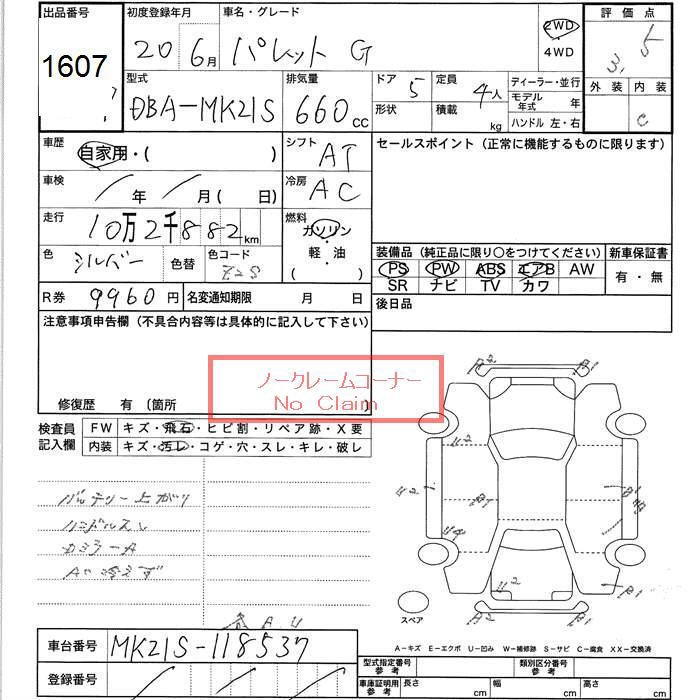 出品番号 初度登録年月 車名・グレード 2WD 評価点
1607 20年6月 パレット G 4WD 3.5
型式 排気量 ドア 定員 ディーラー・並行 外装 内装
DBA-MK21S 660cc 5 4人 モデル年式 年 C
形状 積載 kg ハンドル 左・右
車歴 自家用・( ) シフト AT セールスポイント (正常に機能するものに限ります)
車検 / 年 / 月 ( 日) 冷房 AC
走行 10万2千882km 燃料 ガソリン・軽油 ( )
色 シルバー 色替 色コード Z2S
装備品 (純正品に限り○をつけてください) 新車保証書
PS PW ABS エアB AW 有・無
SR ナビ TV カワ
R券 9960円 名変通知期限 月 日 後日品
注意事項申告欄 (不具合内容等は具体的に記入して下さい)
ノークレームコーナー
No Claim
修復歴 有 〔箇所 〕
検査員記入欄 FW キズ・飛石・ヒビ割・リペア跡・X要
内装 キズ・汚レ・コゲ・穴・スレ・キレ・破レ
バッテリー上がり
ハンドルスレ
カミラーA
AC冷えず
A2 B1
U2
U2 B1 B1
U4
U2
A2 B1
スペア
A-キズ E-エクボ U-凹み W-補修跡 S-サビ C-腐食 XX-交換済
車台番号 MK21S-118537
型式指定番号 参考 類別区分番号 参考
登録番号 / / /
車庫証明用 参考 長さ cm 幅 cm 高さ cm